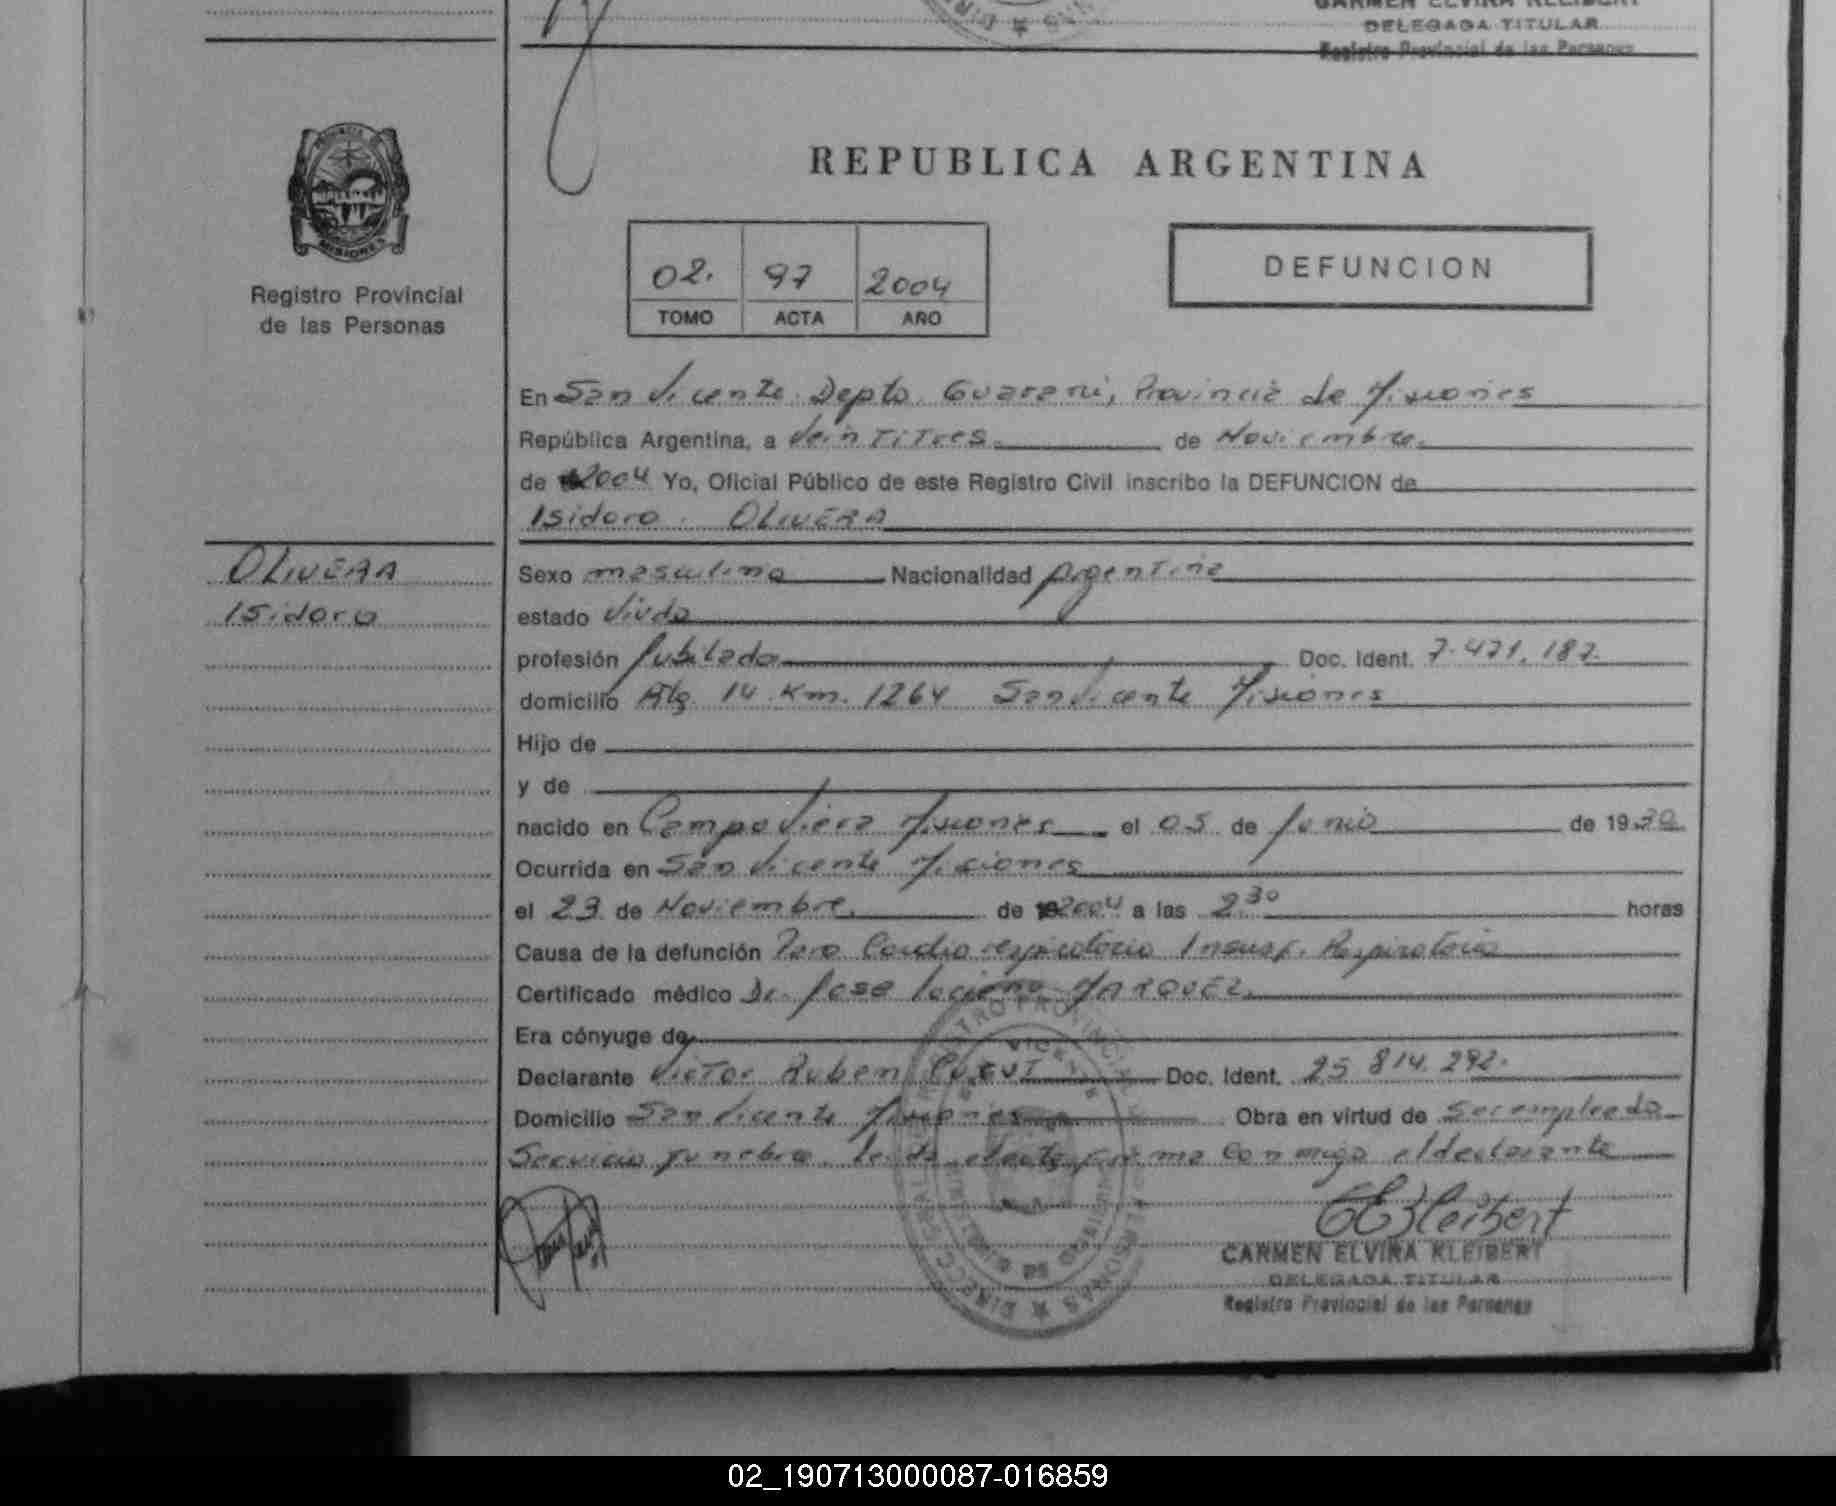 CARMEN ELVIRA KLEIBERT
DELEGADA TITULAR
Registro Provincial de las Personas
REPUBLICA ARGENTINA
MISIONES
Registro Provincial
de las Personas
02. 97 2004
TOMO ACTA AÑO
DEFUNCION
En San Vicente Depto Guarani, Provincia de Misiones
República Argentina, a Veintitres de Noviembre.
de 2004 Yo, Oficial Público de este Registro Civil inscribo la DEFUNCION de
Isidoro OLIVERA
OLIVERA
Isidoro
Sexo masculino Nacionalidad Argentina
estado Viudo
profesión Jubilado Doc. Ident. 7.471.187.
domicilio Km. 1264 San Vicente Misiones
Hijo de
y de
nacido en Campo Viera Misiones el 05 de Junio de 1930
Ocurrida en San Vicente Misiones
el 23 de Noviembre. de 2004 a las 2.30 horas
Causa de la defunción Paro Cardio respiratorio Insuf. Respiratoria
Certificado médico Dr. Jose MARQUEZ
Era cónyuge de
Declarante Victor Ruben Doc. Ident. 25 814.292.
Domicilio San Vicente Misiones Obra en virtud de Ser empleado
Servicio funebre. Leida el acta firma conmigo el declarante
CEKleibert
CARMEN ELVIRA KLEIBERT
DELEGADA TITULAR
Registro Provincial de las Personas
02_190713000087-016859